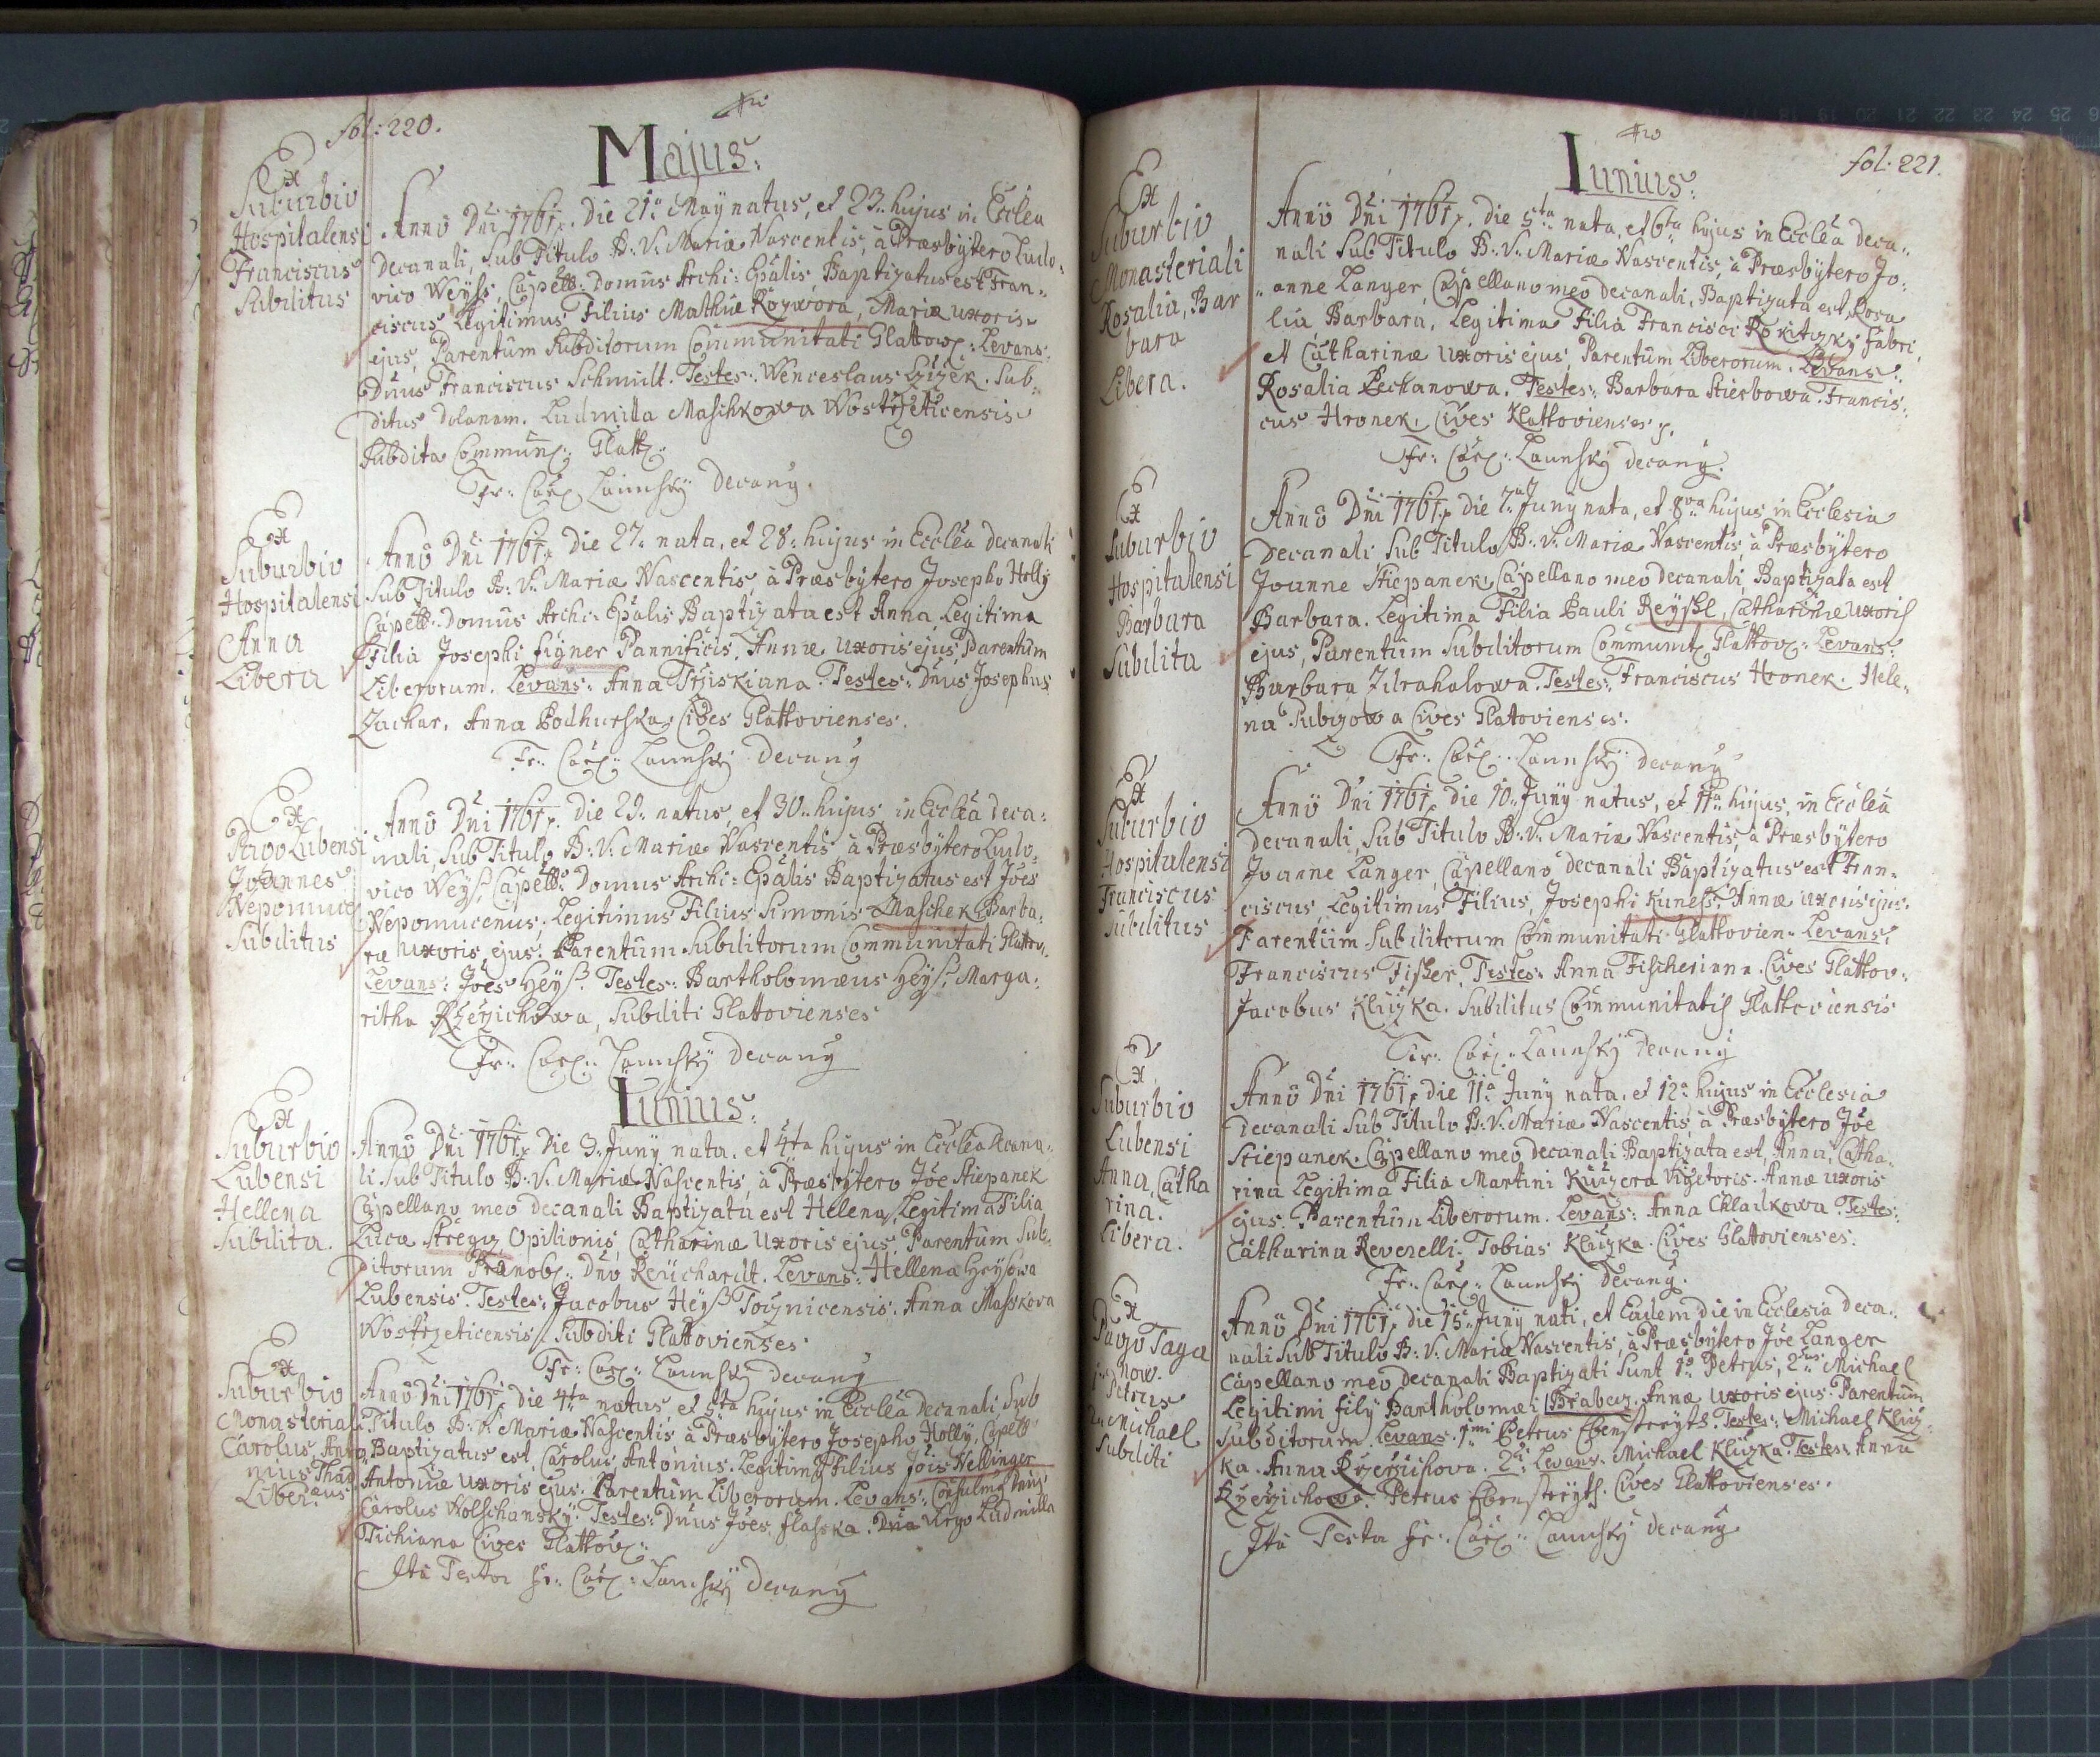 fol: 220.
Majus:
Ex
Suburbio
Hospitalensi
Franciscus
Subditus
Anno Dni 1761. Die 21a May natus, et 23. hujus in Ecclea
Decanali, Sub Titulo B. V. Mariæ Nascentis, à Præsbytero Ludo-
vico Weyss, Capell: Domus Archi: Epalis, Baptizatus est Fran-
ciscus Legitimus Filius Mathiæ Rozwora, Mariæ uxoris
ejus, Parentum Subditorum Communitati Glattov: Levans:
Dnus Franciscus Schmidt. Testes: Wenceslaus Czizek. Sub-
ditus Dolanam. Ludmilla Maschkowa Wostrzeticensis
Subdita Commun: Glatt:
Fr: Car: Launsky Decanus
Ex
Suburbio
Hospitalensi
Anna
Libera
Anno Dni 1761. Die 27. nata, et 28. hujus in Ecclea Decanali
Sub Titulo B: V: Mariæ Nascentis, à Præsbytero Josepho Holly
Capell: Domus Archi: Epalis Baptizata est Anna, Legitima
Filia Josephi Figner Pannificis, Annæ uxoris ejus, Parentum
Liberorum. Levans: Anna Trziskiana. Testes: Dnus Josephus
Zachar. Anna Podhurska, Cives Glattovienses.
Fr: Car: Launsky Decanus
Ex
Pago Lubensi
Joannes
Nepomuce
Subditus
Anno Dni 1761. Die 29. natus, et 30. hujus, in Ecclea Deca-
nali, Sub Titulo B: V: Mariæ Nascentis à Præsbytero Ludo-
vico Weyss, Capell: Domus Archi: Epalis Baptizatus est Joes
Nepomucenus, Legitimus Filius Simonis Maschek, Barba-
ræ uxoris ejus. Parentum Subditorum Communitati Glattov.
Levans: Joes Heyss. Testes: Bartholomæus Heyss, Marga-
ritha Rzezichowa, Subditi Glattovienses
Fr: Car: Launsky Decanus
Iunius:
Ex
Suburbio
Lubensi
Hellena
Subdita.
Anno Dni 1761. Die 3. Juny nata, et 4ta hujus in Ecclea Decana-
li Sub Titulo B: V: Mariæ Nascentis, à Præsbytero Joe Stiepanek
Capellano meo decanali Baptizata est Helena, Legitima Filia
Lucæ Stregz, Opilionis, Catharinæ Uxoris ejus, Parentum Sub-
ditorum Prænob: Dno Reuchardt. Levans: Hellena Heysowa
Lubensis. Testes: Jacobus Heyss Tocznicensis. Anna Masskova
Wostrzeticensis, Subditi Glattovienses.
Fr: Car: Launsky decanus
Ex
Suburbio
Monasteriali
Carolus, Anto
nius Thad
æus
Liber.
Anno Dni 1761. die 4ta natus et 5ta hujus in Ecclea Decanali Sub
Titulo B: V: Mariæ Nascentis à Præsbytero Josepho Holly, Capell
Baptizatus est, Carolus, Antonius. Legitimus Filius Jois Wellinger
Antoniæ uxoris ejus. Parentum Liberorum. Levans: Consulmus Dnus
Carolus Wolschansky. Testes: Dnus Joes Flasska. Dna Virgo Ludmilla
Tichiana Cives Glattov:
Ita Testor Fr: Car: Launsky Decanus
Iunius:
fol. 221.
Ex
Suburbio
Monasteriali
Rosalia, Bar
bara
Libera.
Anno Dni 1761. die 5ta nata, et 6ta hujus in Ecclea deca-
nali Sub Titulo B: V: Mariæ Nascentis, à Præsbytero Jo-
anne Langer, Capellano meo decanali, Baptizata est, Rosa
lia Barbara, Legitima Filia Francisci Rokitzky Fabri,
et Catharinæ Uxoris ejus, Parentum Liberorum. Levans:
Rosalia Pechanowa. Testes: Barbara Stierbowa. Francis-
cus Hronek, Cives Klattovienses.
Fr: Car: Launsky decanus
Ex
Suburbio
Hospitalensi
Barbara
Subdita
Anno Dni 1761. die 7a Juny nata, et 8va hujus in Ecclesia
Decanali Sub Titulo B: V: Mariæ Nascentis à Præsbytero
Joanne Stiepanek, Capellano meo decanali, Baptizata est
Barbara. Legitima Filia Pauli Reyssl, Catharinæ uxoris
ejus, Parentum Subditorum Communit. Glattov: Levans:
Barbara Zdrahalowa. Testes: Franciscus Hronek. Hele-
na Subizowa Cives Glattovienses.
Fr: Car: Launsky decanus
Ex
Suburbio
Hospitalensi
Franciscus
Subditus
Anno Dni 1761. die 10. Juny natus, et 11a hujus, in Ecclea
Decanali, Sub Titulo B: V: Mariæ Nascentis, à Præsbytero
Joanne Langer, Capellano decanali Baptizatus est Fran-
ciscus, Legitimus Filius, Josephi Kuness. Annæ uxoris ejus.
Parentum Subditorum Communitati Glattovien. Levans:
Franciscus Fisher, Testes: Anna Fischeriana. Cives Glattov:
Jacobus Kluzka. Subditus Communitatis Glattoviensis
Fr: Car: Launsky Decanus
Ex
Suburbio
Lubensi
Anna, Catha
rina.
Libera.
Anno Dni 1761. die 11a Juny nata, et 12a hujus in Ecclesia
Decanali Sub Titulo B: V: Mariæ Nascentis, à Præsbytero Joe
Stiepanek. Capellano meo decanali Baptizata est, Anna, Catha-
rina Legitima Filia Martini Kuczera Vigetoris. Annæ uxoris
ejus. Parentum Liberorum. Levans: Anna Chladkowa. Testes:
Catharina Reverelli. Tobias Kluzka. Cives Glattovienses.
Fr: Car: Launsky Decanus.
Ex
Pago Taya
now.
1us Petrus
2us Michael
Subditi
Anno Dni 1761. die 15. Juny nati, et Eadem die in Ecclesia Deca-
nali Sub Titulo B: V: Mariæ Nascentis, à Præsbytero Joe Langer
Capellano meo decanali Baptizati Sunt 1us Petrus, 2us Michael
Legitimi filij Bartholomæi Brabez. Annæ uxoris ejus. Parentum
Subditorum. Levans 1mi Petrus Ebenstreyth. Testes: Michael Kluz-
ka. Anna Rzezichova. 2di Levans. Michael Kluzka. Testes Anna
Rzezichowa. Petrus Ebenstreyth. Cives Glattovienses.
Ita Testor Fr: Car: Launsky decanus